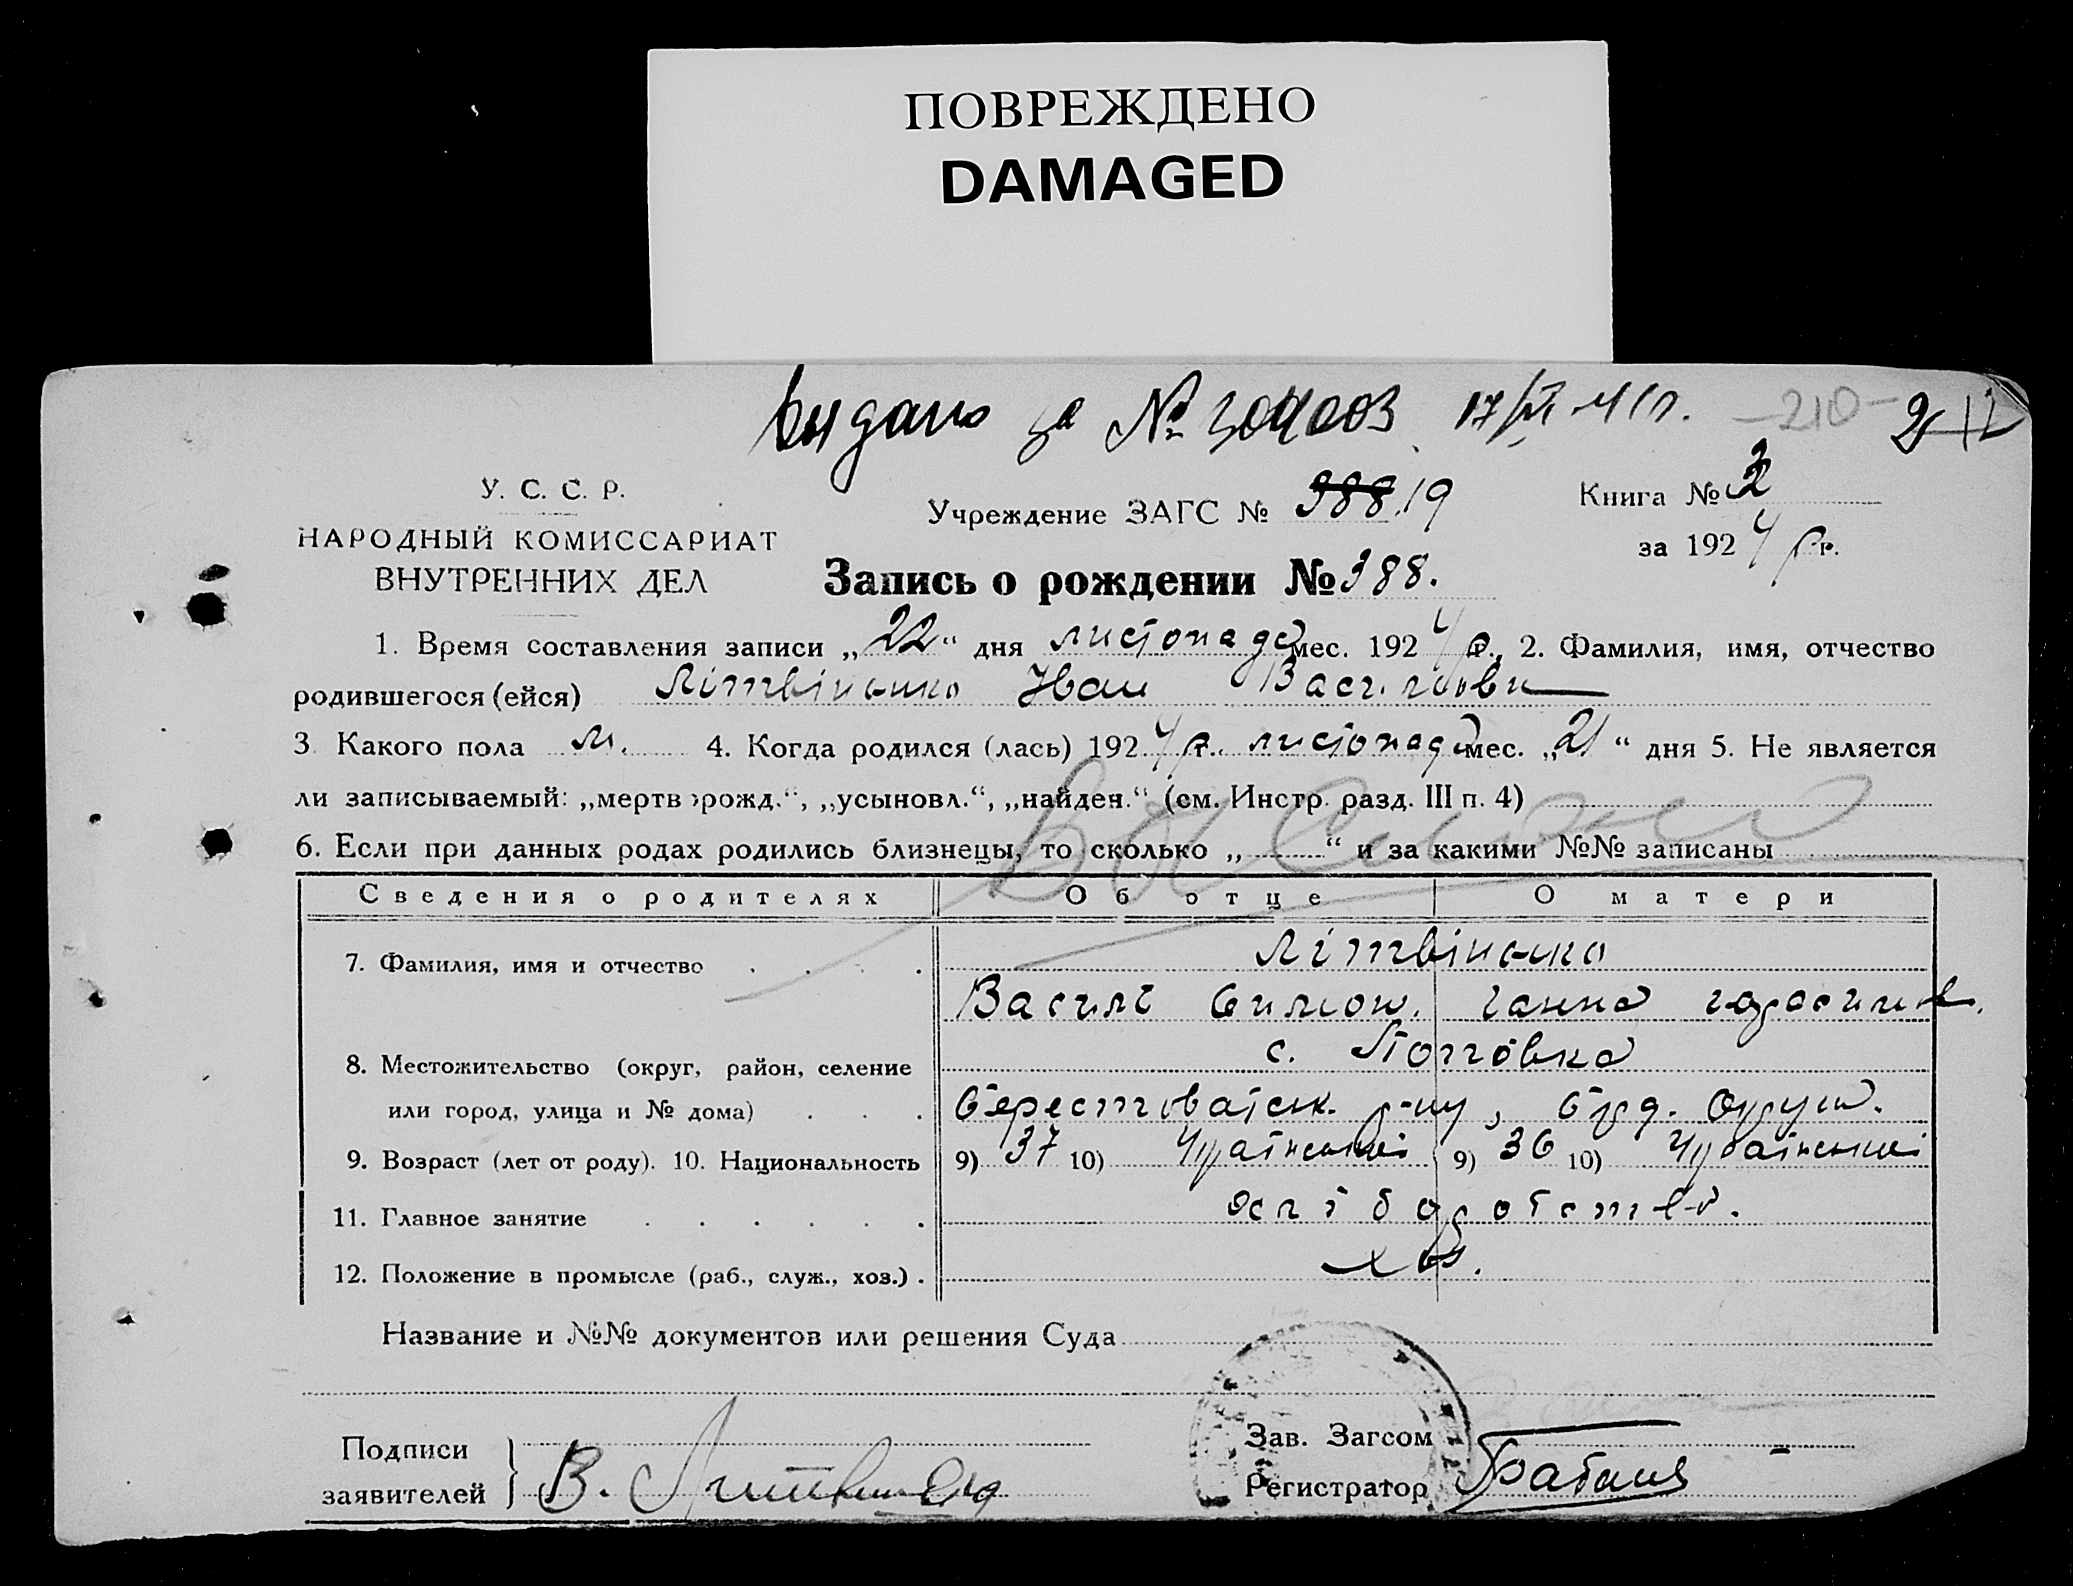 ПОВРЕЖДЕНО
DAMAGED
Видано за № 17/VI 41 р. -210-
У. С. С. Р.
НАРОДНЫЙ КОМИССАРИАТ
ВНУТРЕННИХ ДЕЛ
Учреждение ЗАГС № 388. 19
Книга № 2
за 1924 р г.
Запись о рождении № 388.
1. Время составления записи „22“ дня листопада мес. 1924 р., 2. Фамилия, имя, отчество
родившегося (ейся) Літвіненко Іван Васильови
3 Какого пола м. 4. Когда родился (лась) 1924 р. листопада мес. „21“ дня 5. Не является
ли записываемый: „мертворожд.“, „усыновл.“, „найден.“ (см. Инстр. разд. III п. 4)
6. Если при данных родах родились близнецы, то сколько „ “ и за какими №№ записаны
Сведения о родителях Об отце О матери
7. Фамилия, имя и отчество Літвіненко
Василь Симон. Ганна Гарасимов.
8. Местожительство (округ, район, селение с. Попівка
или город, улица и № дома) берестоватськ. р-ну, берд. округи.
9. Возраст (лет от роду). 10. Национальность 9) 37 10) Україньскої 9) 36 10) Україньскої
11. Главное занятие хліборобство.
12. Положение в промысле (раб., служ., хоз.) хоз.
Название и №№ документов или решения Суда
Подписи
заявителей } В. Литвиненко
Зав. Загсом
Регистратор